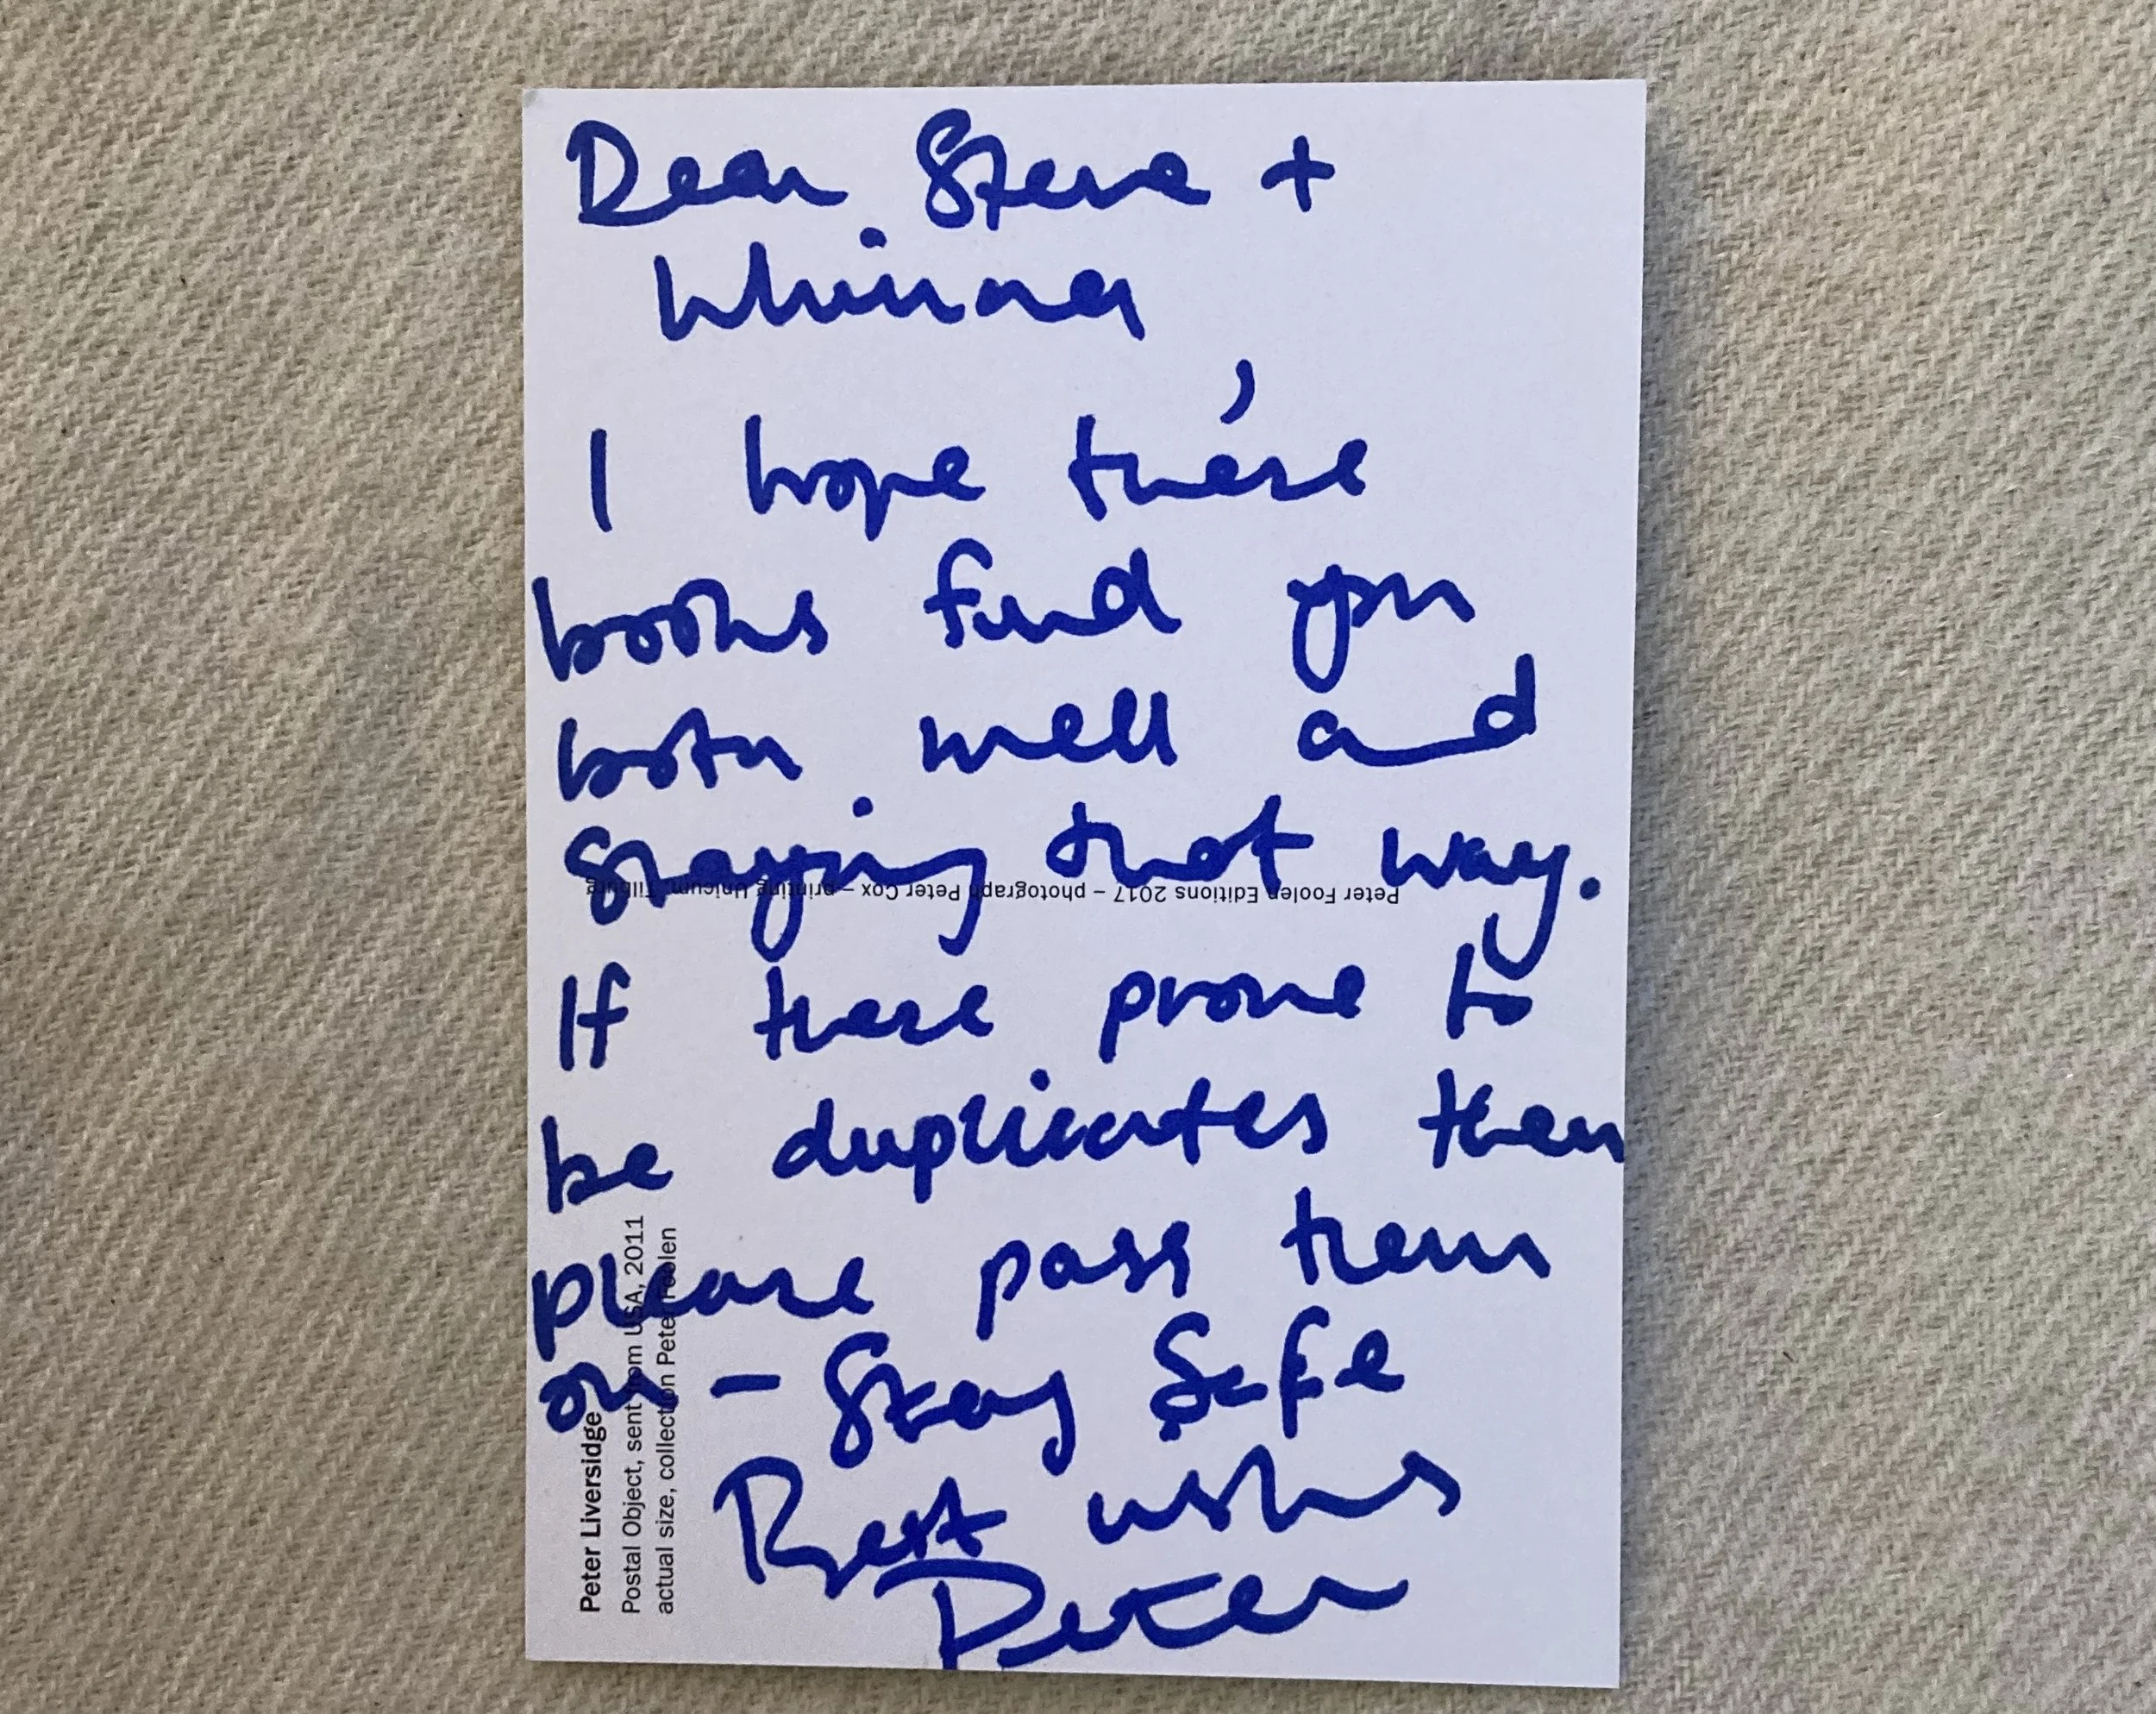 Dear Steve +
Whinna,
I hope these
books find you
both well and
Staying that way.
If these prove to
be duplicates then
please pass them
on – Stay Safe
Best wishes
Peter
Peter Foolen Editions 2017 – photograph Peter Cox – printing Unicum, Tilburg
Peter Liversidge
Postal Object, sent from USA, 2011
actual size, collection Peter Foolen